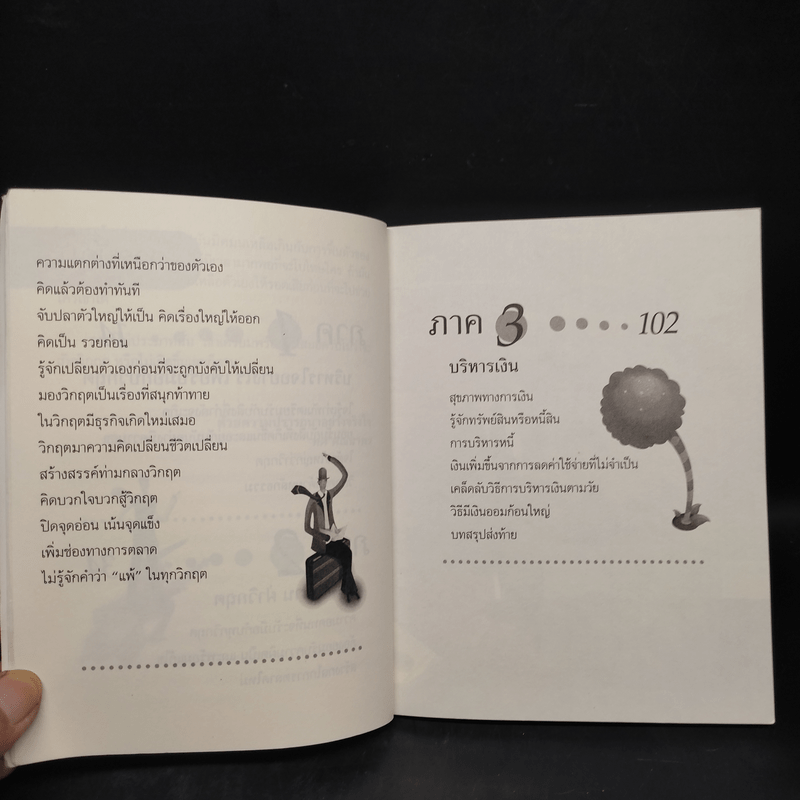 ความแตกต่างที่เหนือกว่าของตัวเอง
คิดแล้วต้องทำทันที
จับปลาตัวใหญ่ให้เป็น คิดเรื่องใหญ่ให้ออก
คิดเป็น รวยก่อน
รู้จักเปลี่ยนตัวเองก่อนที่จะถูกบังคับให้เปลี่ยน
มองวิกฤตเป็นเรื่องที่สนุกท้าทาย
ในวิกฤตมีธุรกิจเกิดใหม่เสมอ
วิกฤตมาความคิดเปลี่ยนชีวิตเปลี่ยน
สร้างสรรค์ท่ามกลางวิกฤต
คิดบวกใจบวกสู้วิกฤต
ปิดจุดอ่อน เน้นจุดแข็ง
เพิ่มช่องทางการตลาด
ไม่รู้จักคำว่า “แพ้” ในทุกวิกฤต
ภาค 3 102
บริหารเงิน
สุขภาพทางการเงิน
รู้จักทรัพย์สินหรือหนี้สิน
การบริหารหนี้
เงินเพิ่มขึ้นจากการลดค่าใช้จ่ายที่ไม่จำเป็น
เคล็ดลับวิธีการบริหารเงินตามวัย
วิธีมีเงินออมก้อนใหญ่
บทสรุปส่งท้าย